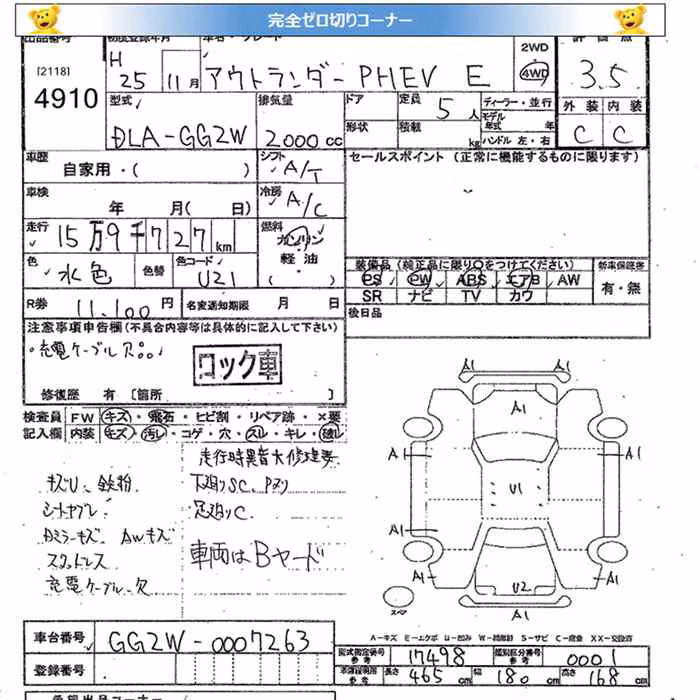 完全ゼロ切りコーナー
出品番号 初度登録年月 車名・グレード 2WD 評価点
[2118] H 25 11月 アウトランダーPHEV E 4WD 3.5
4910 型式 排気量 ドア 定員 5人 ディーラー・並行 外装 内装
DLA-GG2W 2000cc 形状 積載 kg モデル年式 年 ハンドル 左・右 C C
車歴 自家用・( ) シフト A/T セールスポイント (正常に機能するものに限ります)
車検 年 月( 日) 冷房 A/C
走行 15万9千727km 燃料 ガソリン 軽油 ( )
色 水色 色替 色コード U21 装備品 (純正品に限り○をつけてください) 新車保証書
PS PW ABS エアB AW 有・無
R券 11,100円 名変通知期限 月 日 SR ナビ TV カワ
注意事項申告欄(不具合内容等は具体的に記入して下さい) 後日品
・充電ケーブル欠 ロック車
修復歴 有 [箇所 ]
検査員 FW キズ・飛石・ヒビ割・リペア跡・×要
記入欄 内装 キズ・汚レ・コゲ・穴・スレ・キレ・破レ
走行時異音大修理要
キズU、鉄粉 下廻りSC、Pヌリ
シートヤブレ 足廻りC
Dミラーキズ AWキズ
スタッドレス 車両はBヤード
充電ケーブル欠
A1 A1
A1
A1 A1
U1
A1 A1
A1 A1
U2
スペア A1
A-キズ E-エクボ U-凹み W-補修跡 S-サビ C-腐食 XX-交換済
車台番号 GG2W-0007263 型式指定番号 参考 17498 類別区分番号 参考 0001
登録番号 車庫証明用 参考 長さ 465cm 幅 180cm 高さ 168cm